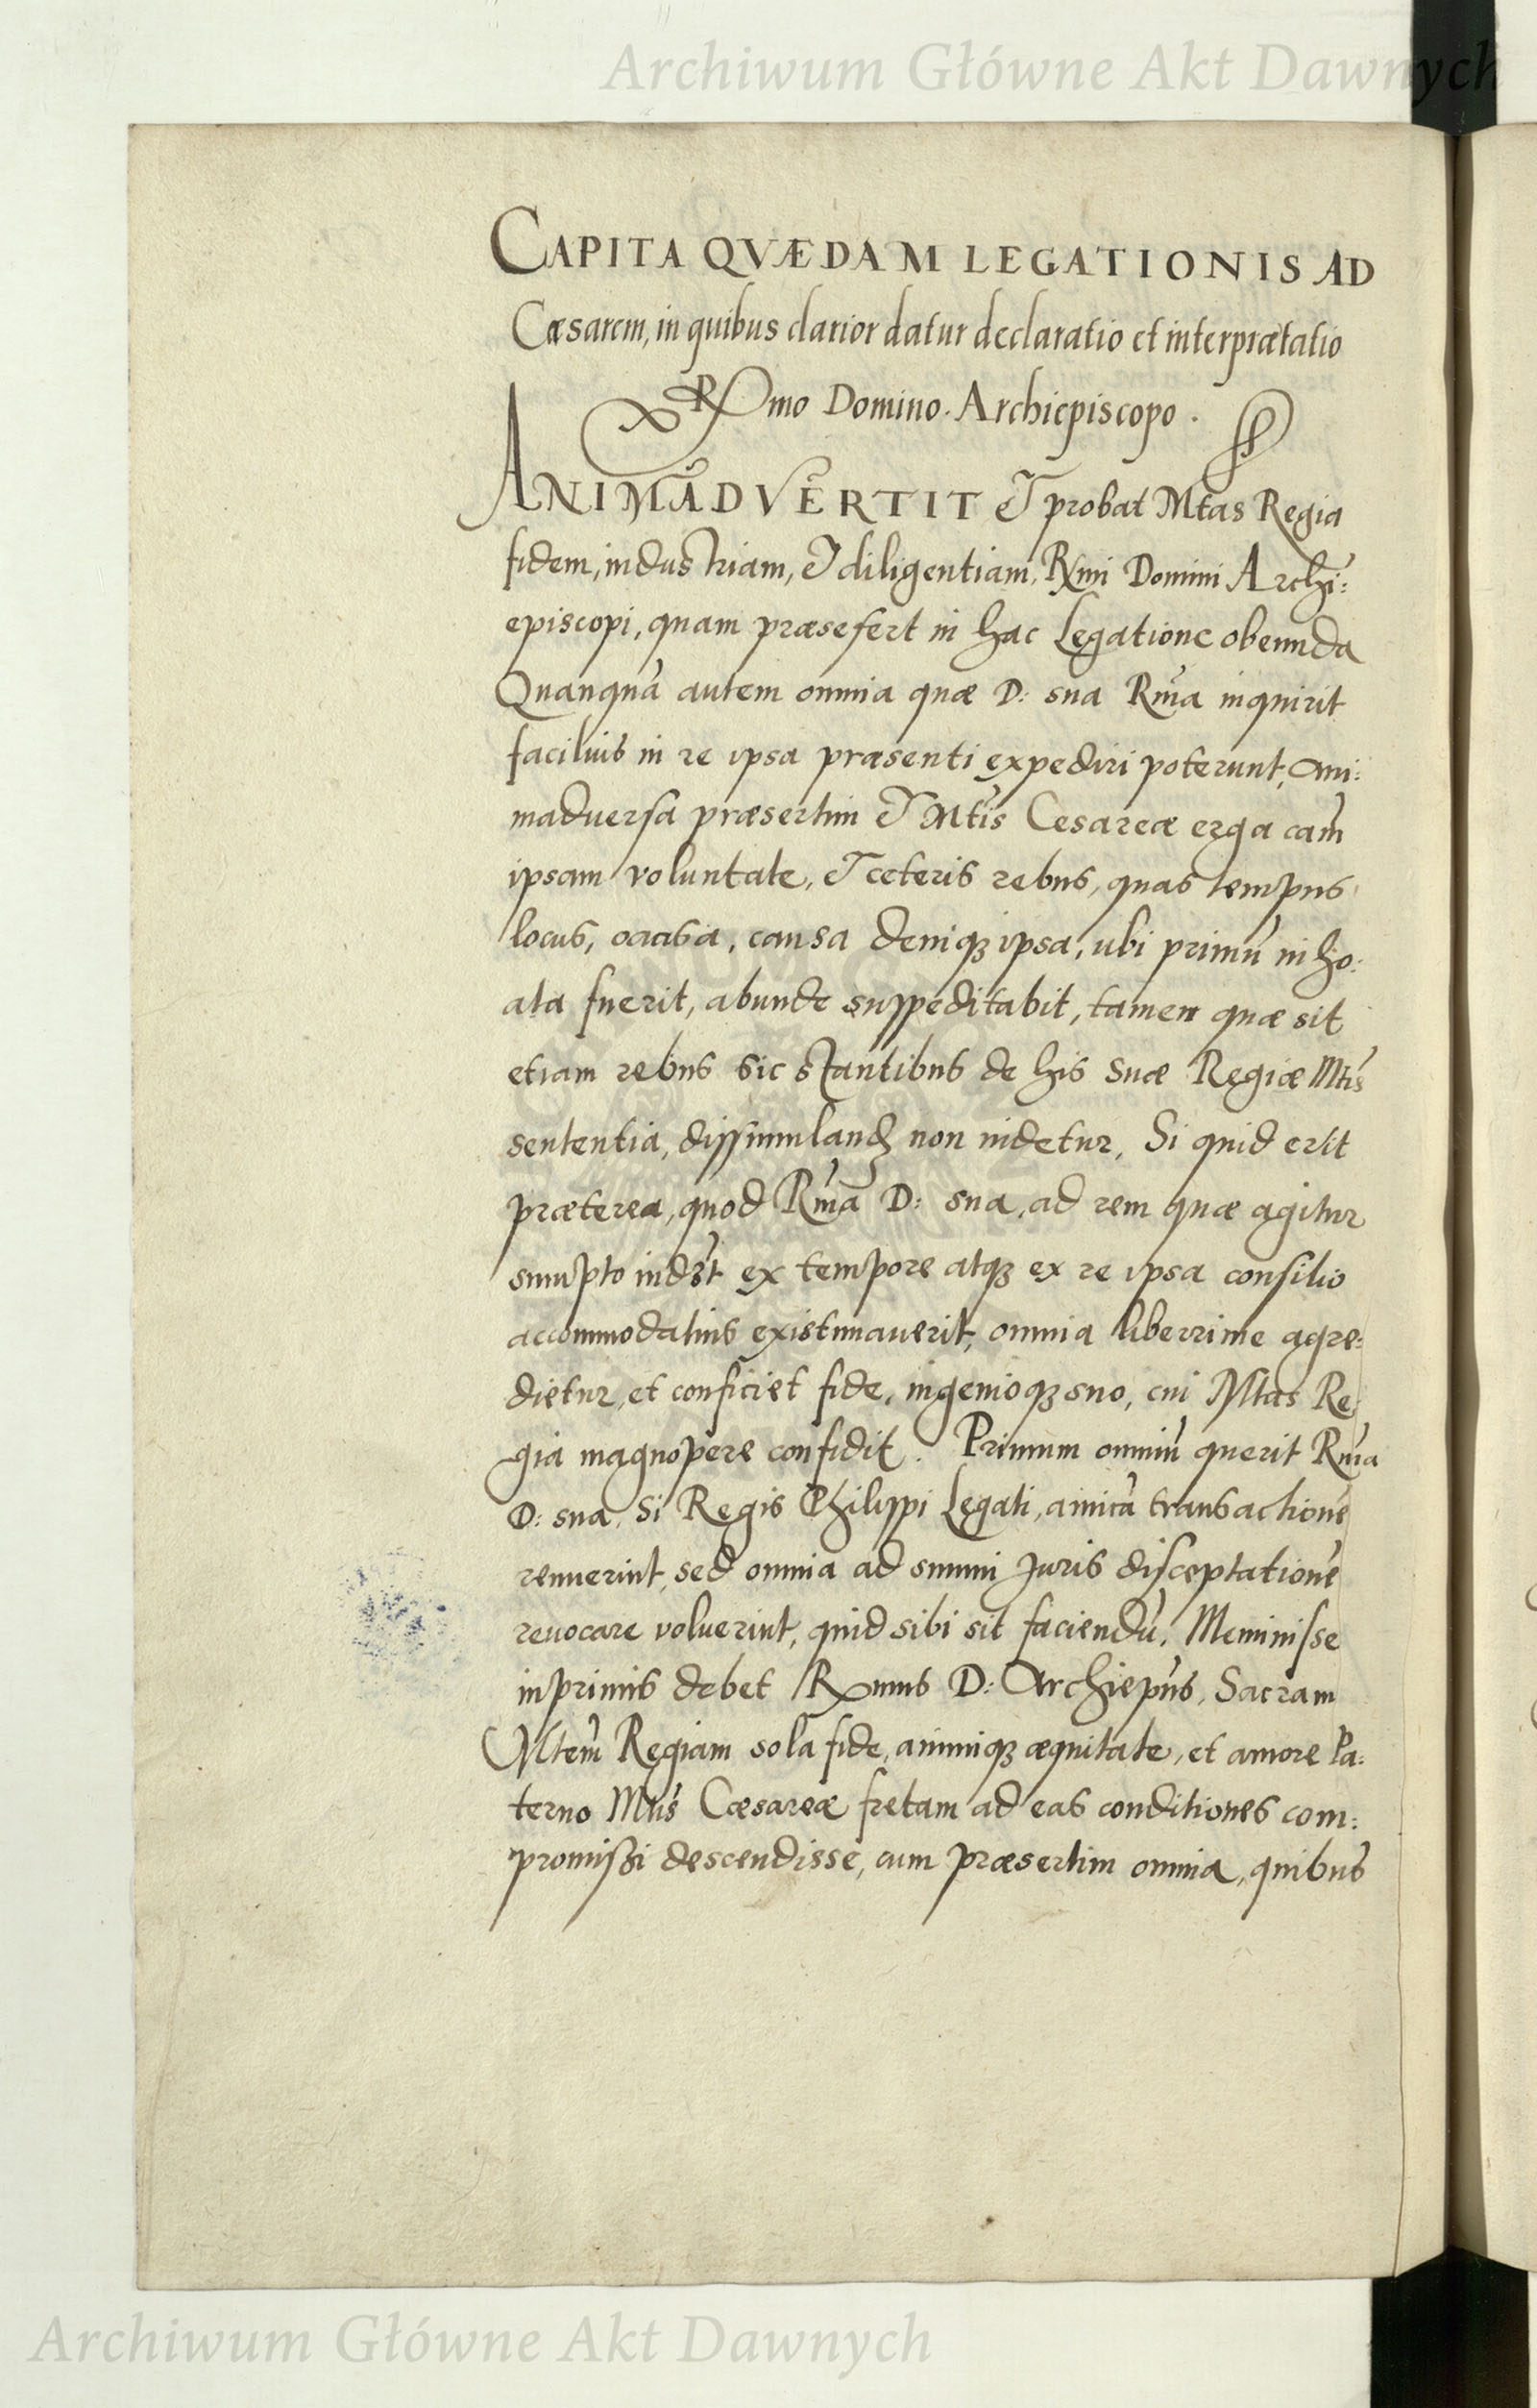 Archiwum Główne Akt Dawnych
CAPITA QVÆDAM LEGATIONIS AD
Cæsarem, in quibus clarior datur declaratio et interprætatio
Rmo Domino. Archiepiscopo.
ANIMADVERTIT Et probat Mtas Regia
fidem, industriam, Et diligentiam, Rmi Domini Archi:
episcopi, quam præsefert in hac Legatione obeunda
Quanquā autem omnia quæ D: sua Rm̄a inquirit
facilius in re ipsa præsenti expediri poterunt, Ani:
maduersa præsertim Et Mtis Cesareæ erga eam̄
ipsam voluntate, Et ceteris rebus, quas tempus
locus, occasio, causa deniqꝫ ipsa, ubi primū inho:
ata fuerit, abunde suppeditabit, tamen quæ sit
etiam rebus sic stantibus de his Suæ Regiæ Mtis
sententia, dissimulandū non uidetur, Si quid erit
præterea, quod Rm̄a D: sua, ad rem quæ agitur
sumpto indēt ex tempore atqꝫ ex re ipsa consilio
accommodatius existimauerit, omnia liberrime agre:
dietur, et conficiet fide, ingenioqꝫ suo, cui Mtas Re:
gia magnopere confidit. Primum omniū querit Rm̄a
D: sua, Si Regis Philippi Legati, amicā transactionē
renuerint, sed omnia ad summi Juris disceptationē
reuocare voluerint, quid sibi sit faciendū, Meminisse
inprimis debet Rmus D: Archiepūs, Sacram
Mtem̄ Regiam sola fide, animiqꝫ æquitate, et amore Pa:
terno Mtis Cæsareæ fretam ad eas conditiones com:
promißi descendisse, cum præsertim omnia, quibus
Archiwum Główne Akt Dawnych